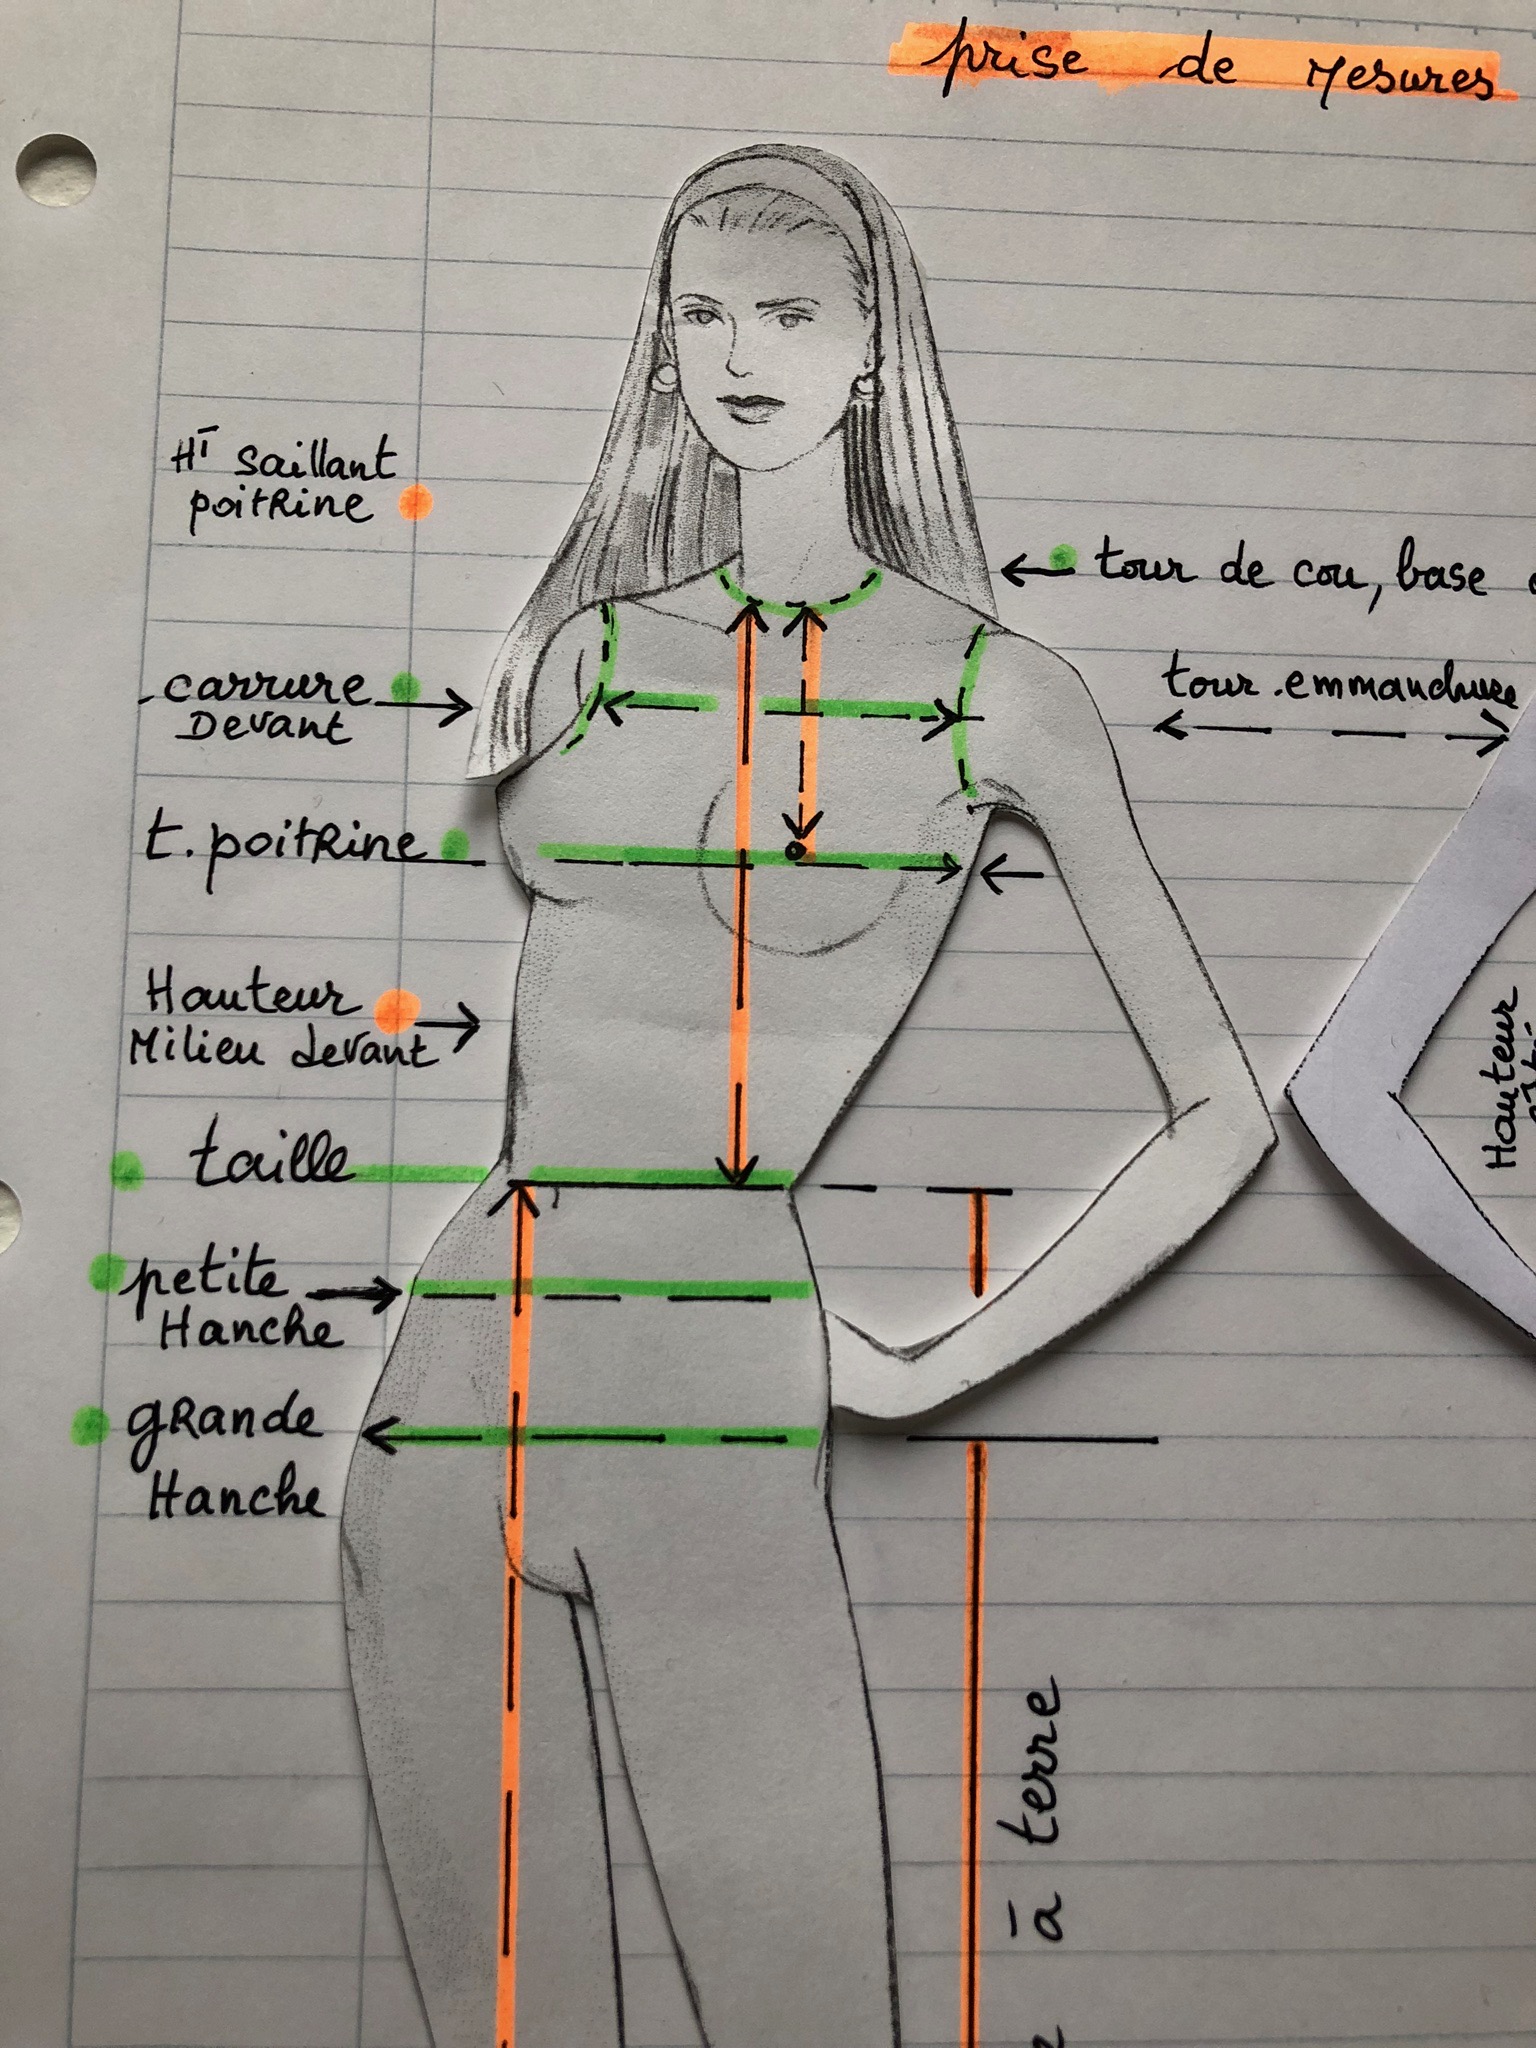 prise de Mesures
HT saillant
poitRine
tour de cou, base
carrure
Devant
tour emmanchure
t. poitRine
Hauteur
Milieu devant
Hauteur
taille
petite
Hanche
gRande
Hanche
à terre